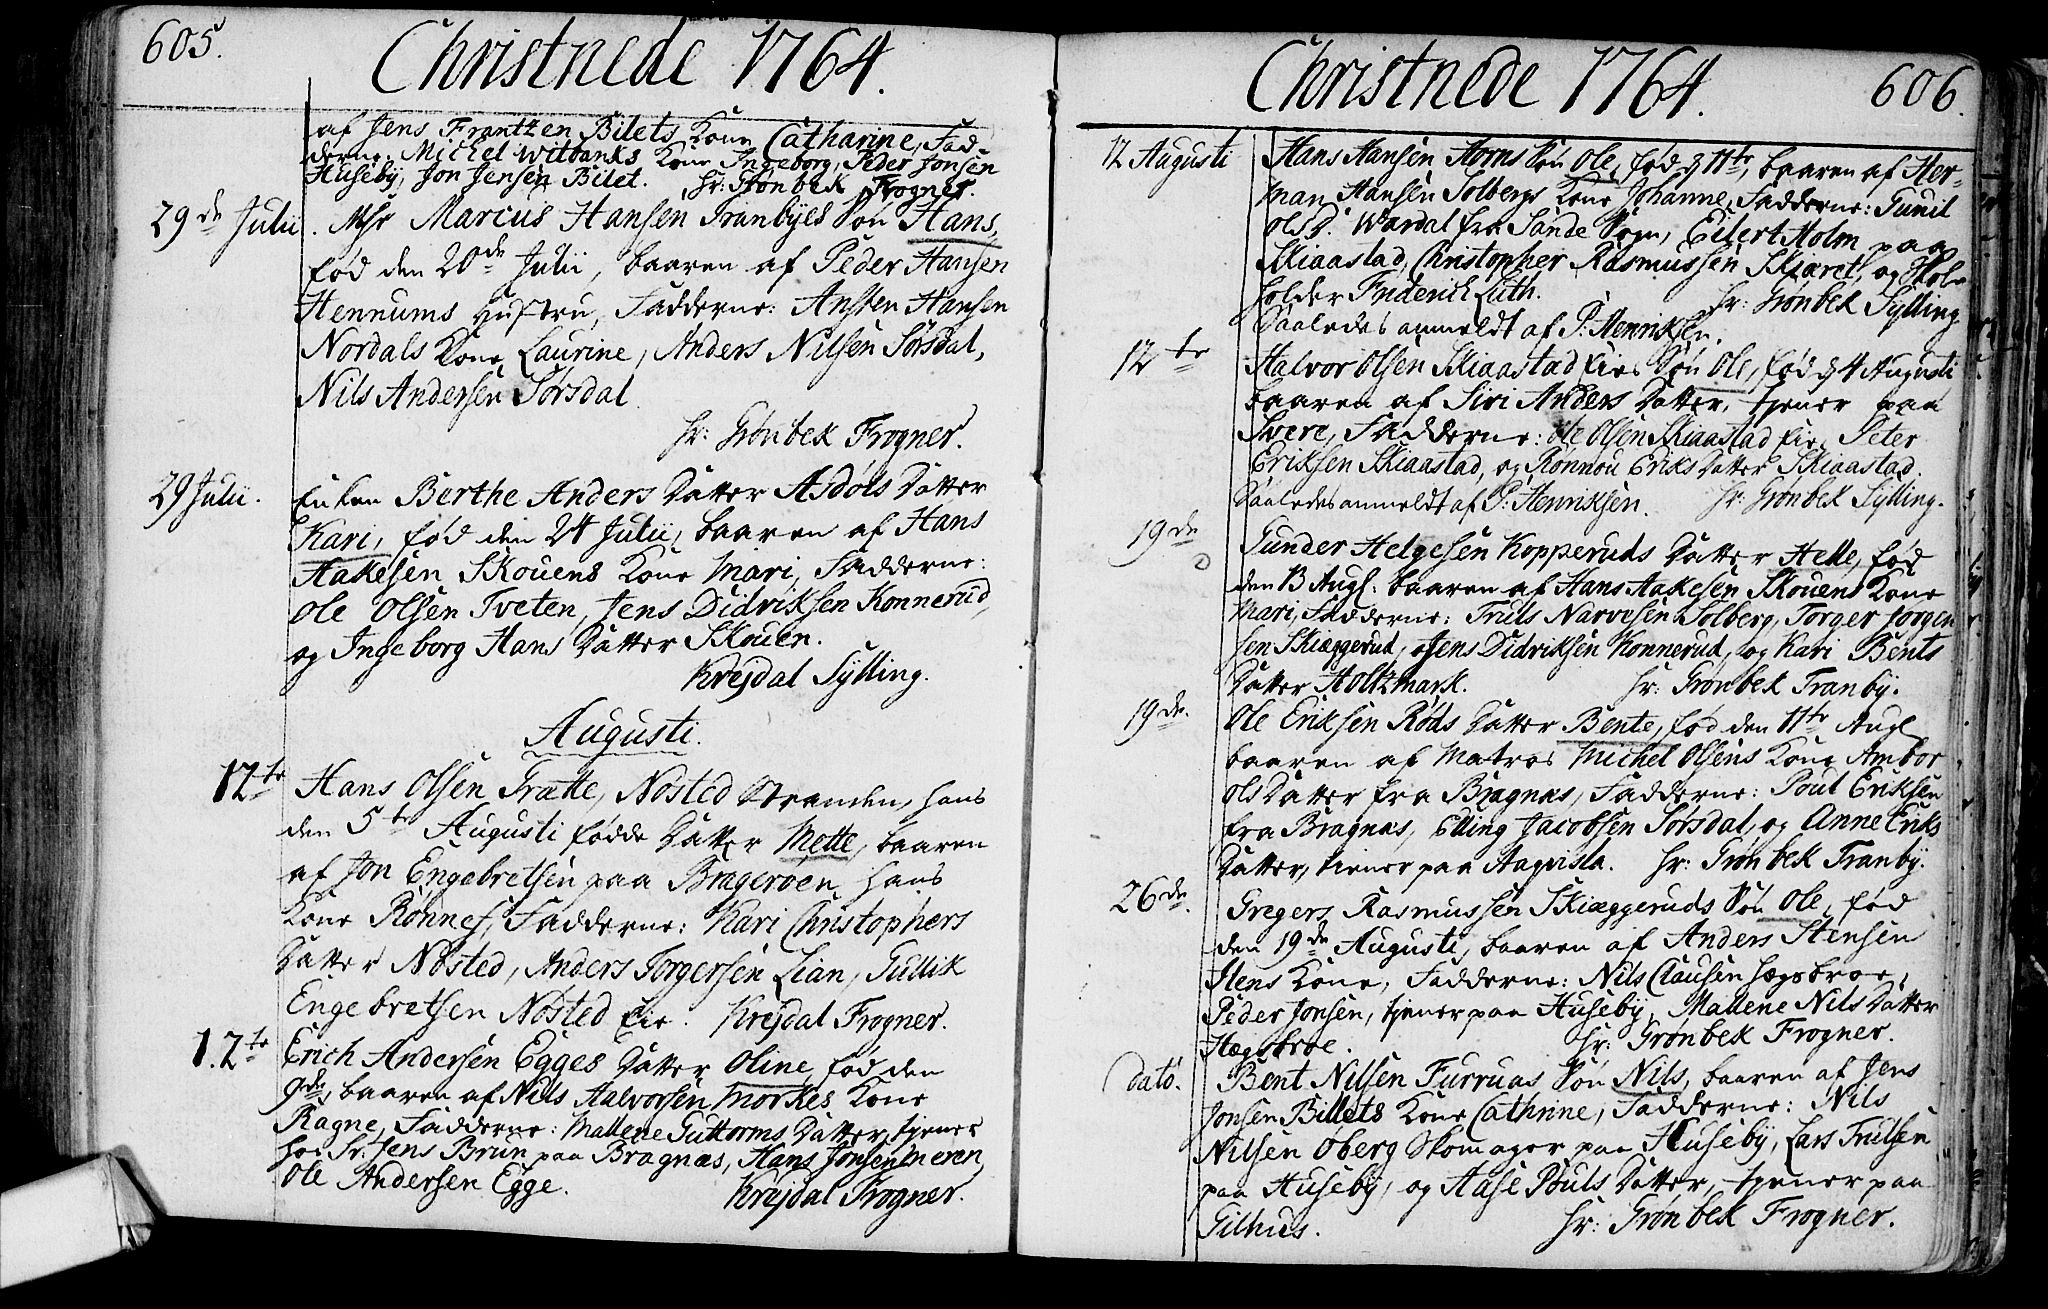 605.
Christnede 1764.
af Jens Frantzen Bilets Kone Catharine, Fad-
derne: Michel Witbanks Kone Ingeborg, Peder Jonsen
Huseby, Jon Jensen Bilet. Hr: Grønbek Frogner.
29de Julii. Mr Marcus Hansen Tranbyes Søn Hans,
fød den 20de Julii, baaren af Peder Hansen
Hennums Hustru, Fadderne: Ansten Hansen
Nordals Kone Laurine, Anders Nilsen Sørsdal,
Nils Andersen Sørsdal
Hr: Grønbek Frogner.
29 Julii. Enken Berthe Anders Datter Asdøls Datter
Kari, fød den 24 Julii, baaren af Hans
Aakesen Skouens Kone Mari, Fadderne:
Ole Olsen Tveten, Jens Didriksen Konnerud,
og Ingeborg Hans Datter Skouen.
Krejdal Sylling.
Augusti.
12te Hans Olsen Tratte, Nøsted Stranden, hans
den 5te Augusti fødde Datter Mette, baaren
af Jon Engebretsen paa Bragerøen hans
Kone Rønnef, Fadderne: Kari Christophers
Datter Nøsted, Anders Torgersen Lian, Gullik
Engebretsen Nøsted Eie. Krejdal Frogner.
12te Erich Andersen Egges Datter Oline, fød den
9de, baaren af Nils Halvorsen Mørkes Kone
Ragne, Fadderne: Mallene Guttorms Datter, tjener
hos Sr. Jens Brun paa Bragnæs, Hans Jonsen Meren,
Ole Andersen Egge. Krejdal Frogner.
Christnede 1764. 606.
12 Augusti Hans Hansen Horns Søn Ole, fød d 11te, baaren af Her-
man Hansen Solbergs Kone Johanne, Fadderne: Gunil
Ols D. Wardal fra Sande Sogn, Eilert Holm paa
Skiaastad, Christopher Rasmussen Skjæret, og
holder Friderich Luth. Hr: Grønbek Sylling.
Saaledes anmeldt af P: Henriksen.
12te Halvor Olsen Skiaastad Eies Søn Ole, fød d 4 Augusti
baaren af Siri Anders Datter, tjener paa
Svere, Fadderne: Ole Olsen Skiaastad Eie, Peter
Eriksen Skiaastad, og Rønnou Eriks Datter Skiaastad.
Saaledes anmeldt af P: Henriksen. Hr: Grønbek Sylling.
19de Gunder Helgesen Kopperuds Datter Helle, fød
den 13 Aug: baaren af Hans Aakesen Skouens Kone
Mari, Fadderne: Truls Narvesen Solberg, Torger Jorgen
sen Skiæggerud, Jens Didriksen Konnerud, og Kari Bents
Datter Holtzmark. Hr: Grønbek Tranby.
19de. Ole Eriksen Røds Datter Bente, fød den 11te Aug
baaren af Matros Michel Olsens Kone Ambor
Ols Datter fra Bragnæs, Fadderne: Poul Eriksen
fra Bragnæs, Elling Jacobsen Sørsdal, og Anne Eriks
Datter, tiener paa Aaqvisla. Hr: Grønbek Tranby.
26de. Gregers Rasmussen Skiæggeruds Søn Ole, fød
den 19de Augusti, baaren af Anders Stensen
Stens Kone, Fadderne: Nils Clausen Hægsbroe,
Peder Jonsen, tjener paa Huseby, Mallene Nils Datter
Hægsbroe. Hr: Grønbek Frogner.
dato. Bent Nilsen Furruas Søn Nils, baaren af Jens
Jonsen Billets Kone Cathrine, Fadderne: Nils
Nilsen Øberg Skomager paa Huseby, Lars Trulsen
paa Huseby, og Aase Pouls Datter, tjener paa
Gilhus. Hr: Grønbek Frogner.